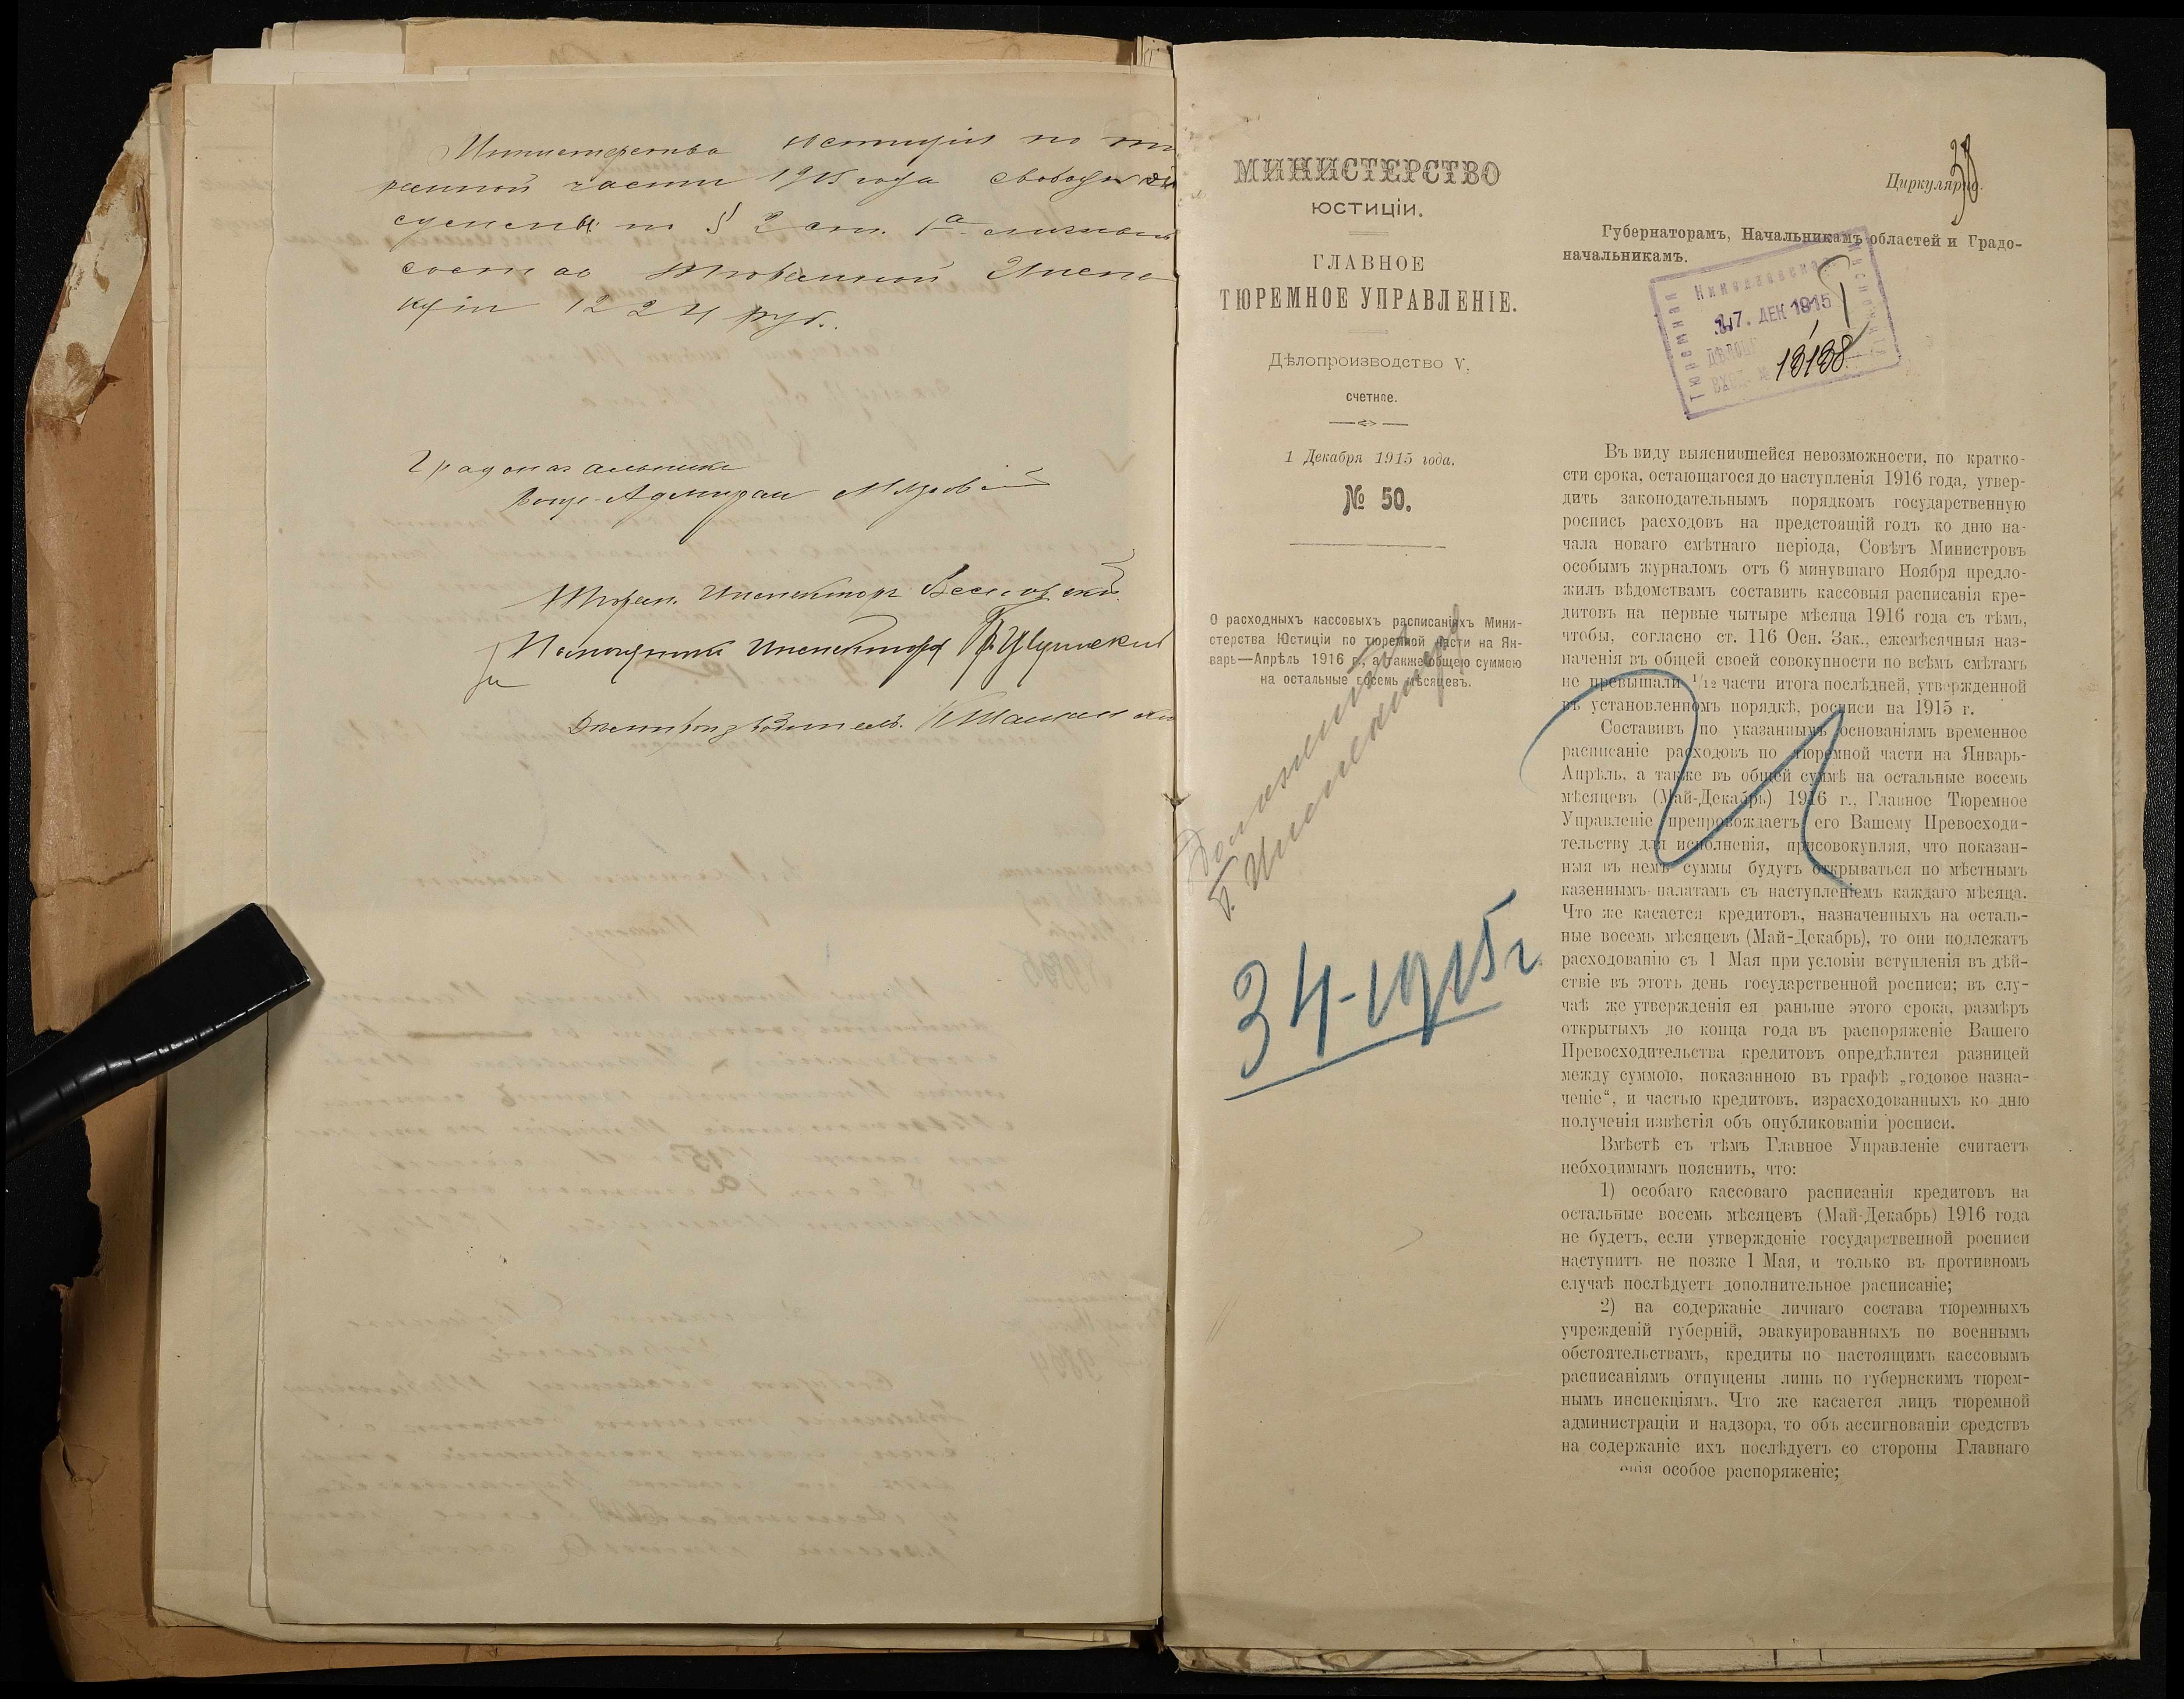 Министерства Юстиціи по тю
ремной части 1915 года свободн
§ 2 ст. 1а личный
состав Тюремной Инспе
кціи 1224 руб.
Градоначальник
Вице-Адмирал
Тюрем. Инспектор
Помощник Инспектора
Делопроизводитель
МИНИСТЕРСТВО
ЮСТИЦІИ.
ГЛАВНОЕ
ТЮРЕМНОЕ УПРАВЛЕНІЕ.
Дѣлопроизводство V,
счетное.
1 Декабря 1915 года.
№ 50.
О расходныхъ кассовыхъ расписаніяхъ Мини-
стерства Юстиціи по тюремной части на Ян-
варь—Апрѣль 1916 г., а также общею суммою
на остальные восемь мѣсяцевъ.
Г. Инспектора
34-1915 г.
38
Циркулярно.
Губернаторамъ, Начальникамъ областей и Градо-
начальникамъ.
Николаевская
Тюремная
17. ДЕК 1915
ВХОД. №
13138
Въ виду выяснившейся невозможности, по кратко-
сти срока, остающагося до наступленія 1916 года, утвер-
дить законодательнымъ порядкомъ государственную
роспись расходовъ на предстоящій годъ ко дню на-
чала новаго смѣтнаго періода, Совѣтъ Министровъ
особымъ журналомъ отъ 6 минувшаго Ноября предло-
жилъ вѣдомствамъ составить кассовыя расписанія кре-
дитовъ на первые чытыре мѣсяца 1916 года съ тѣмъ,
чтобы, согласно ст. 116 Осн. Зак., ежемѣсячныя наз-
наченія въ общей своей совокупности по всѣмъ смѣтамъ
не превышали 1/12 части итога послѣдней, утвержденной
въ установленномъ порядкѣ, росписи на 1915 г.
Составивъ по указаннымъ основаніямъ временное
расписаніе расходовъ по тюремной части на Январь-
Апрѣль, а также въ общей суммѣ на остальные восемь
мѣсяцевъ (Май-Декабрь) 1916 г., Главное Тюремное
Управленіе препровождаетъ его Вашему Превосходи-
тельству для исполненія, присовокупляя, что показан-
ныя въ немъ суммы будутъ открываться по мѣстнымъ
казеннымъ палатамъ съ наступленіемъ каждаго мѣсяца.
Что же касается кредитовъ, назначенныхъ на осталь-
ные восемь мѣсяцевъ (Май-Декабрь), то они подлежатъ
расходованію съ 1 Мая при условіи вступленія въ дѣй-
ствіе въ этотъ день государственной росписи; въ слу-
чаѣ же утвержденія ея раньше этого срока, размѣръ
открытыхъ до конца года въ распоряженіе Вашего
Превосходительства кредитовъ опредѣлится разницей
между суммою, показанною въ графѣ „годовое назна-
ченіе“, и частью кредитовъ, израсходованныхъ ко дню
полученія извѣстія объ опубликованіи росписи.
Вмѣстѣ съ тѣмъ Главное Управленіе считаетъ
небходимымъ пояснить, что:
1) особаго кассоваго расписанія кредитовъ на
остальные восемь мѣсяцевъ (Май-Декабрь) 1916 года
не будетъ, если утвержденіе государственной росписи
наступитъ не позже 1 Мая, и только въ противномъ
случаѣ послѣдуетъ дополнительное расписаніе;
2) на содержаніе личнаго состава тюремныхъ
учрежденій губерній, эвакуированныхъ по военнымъ
обстоятельствамъ, кредиты по настоящимъ кассовымъ
расписаніямъ отпущены лишь по губернскимъ тюрем-
нымъ инспекціямъ. Что же касается лицъ тюремной
администраціи и надзора, то объ ассигнованіи средствъ
на содержаніе ихъ послѣдуетъ со стороны Главнаго
особое распоряженіе;